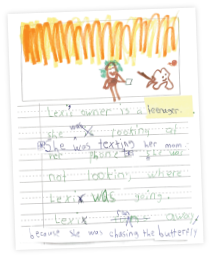 Lexi owner is a teenager.
she was looking at
She was texting her mom
her phone she was
not looking where
Lexi was going.
Lexi ran away
because she was chasing the butterfly